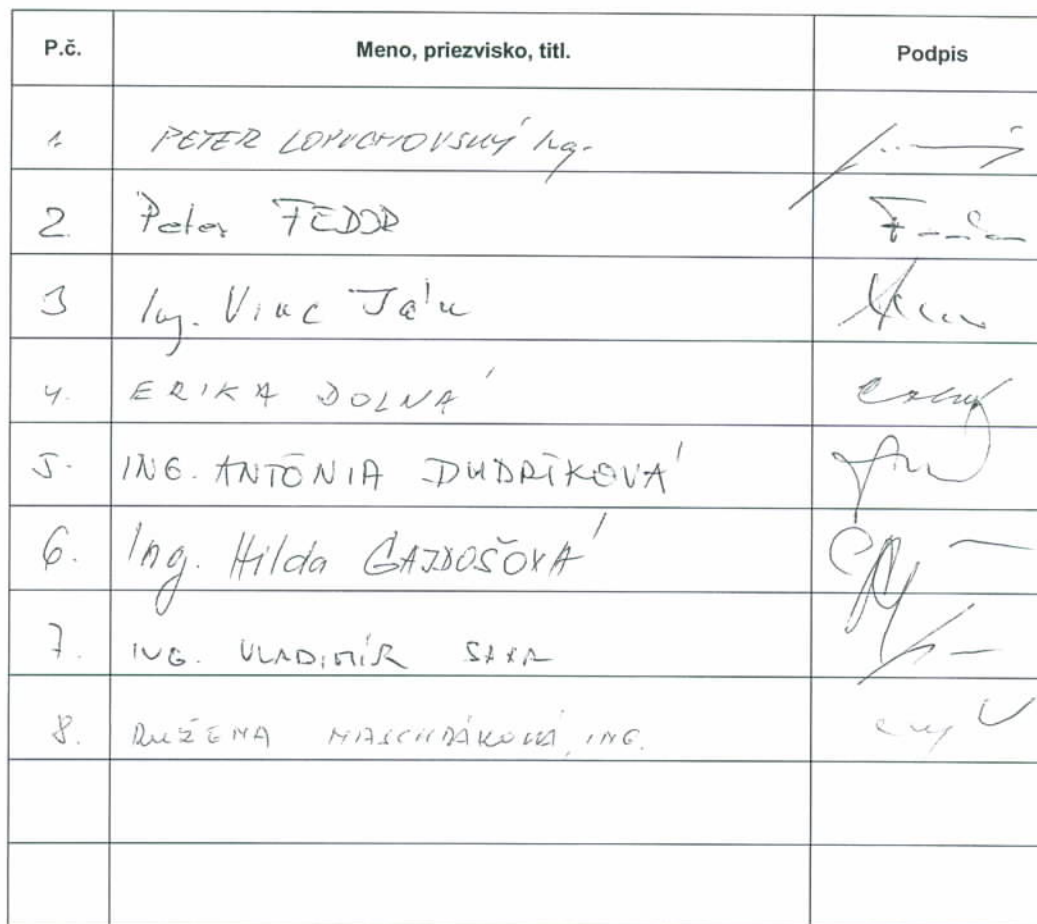 P.č. Meno, priezvisko, titl. Podpis
1. PETER LOPUCHOVSKÝ Ing.
2. Peter FEDOR
3 Ing. Vinc Ján
4. ERIKA DOLNÁ
5. ING. ANTÓNIA DUDRÍKOVÁ
6. Ing. Hilda GAJDOŠOVÁ
7. ING. VLADIMÍR
8. RUŽENA ING.